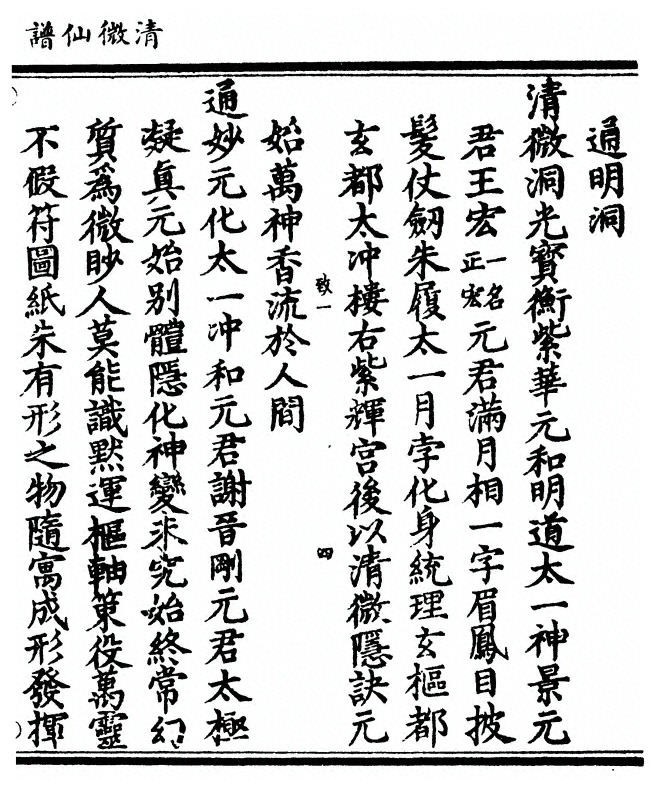 清微仙譜
通明洞
清微洞光寶衡紫華元和明道太一神景元
君王宏一名正宏元君滿月相一字眉鳳目披
髮仗劒朱履太一月孛化身統理玄樞都
玄都太冲樓右紫輝宮後以清微隱訣元
致一
四
始萬神香流於人間
通妙元化太一冲和元君謝晉剛元君太極
凝真元始別體隱化神變未究始終常幻
質爲微眇人莫能識默運樞軸策役萬靈
不假符圖紙朱有形之物隨寓成形發揮